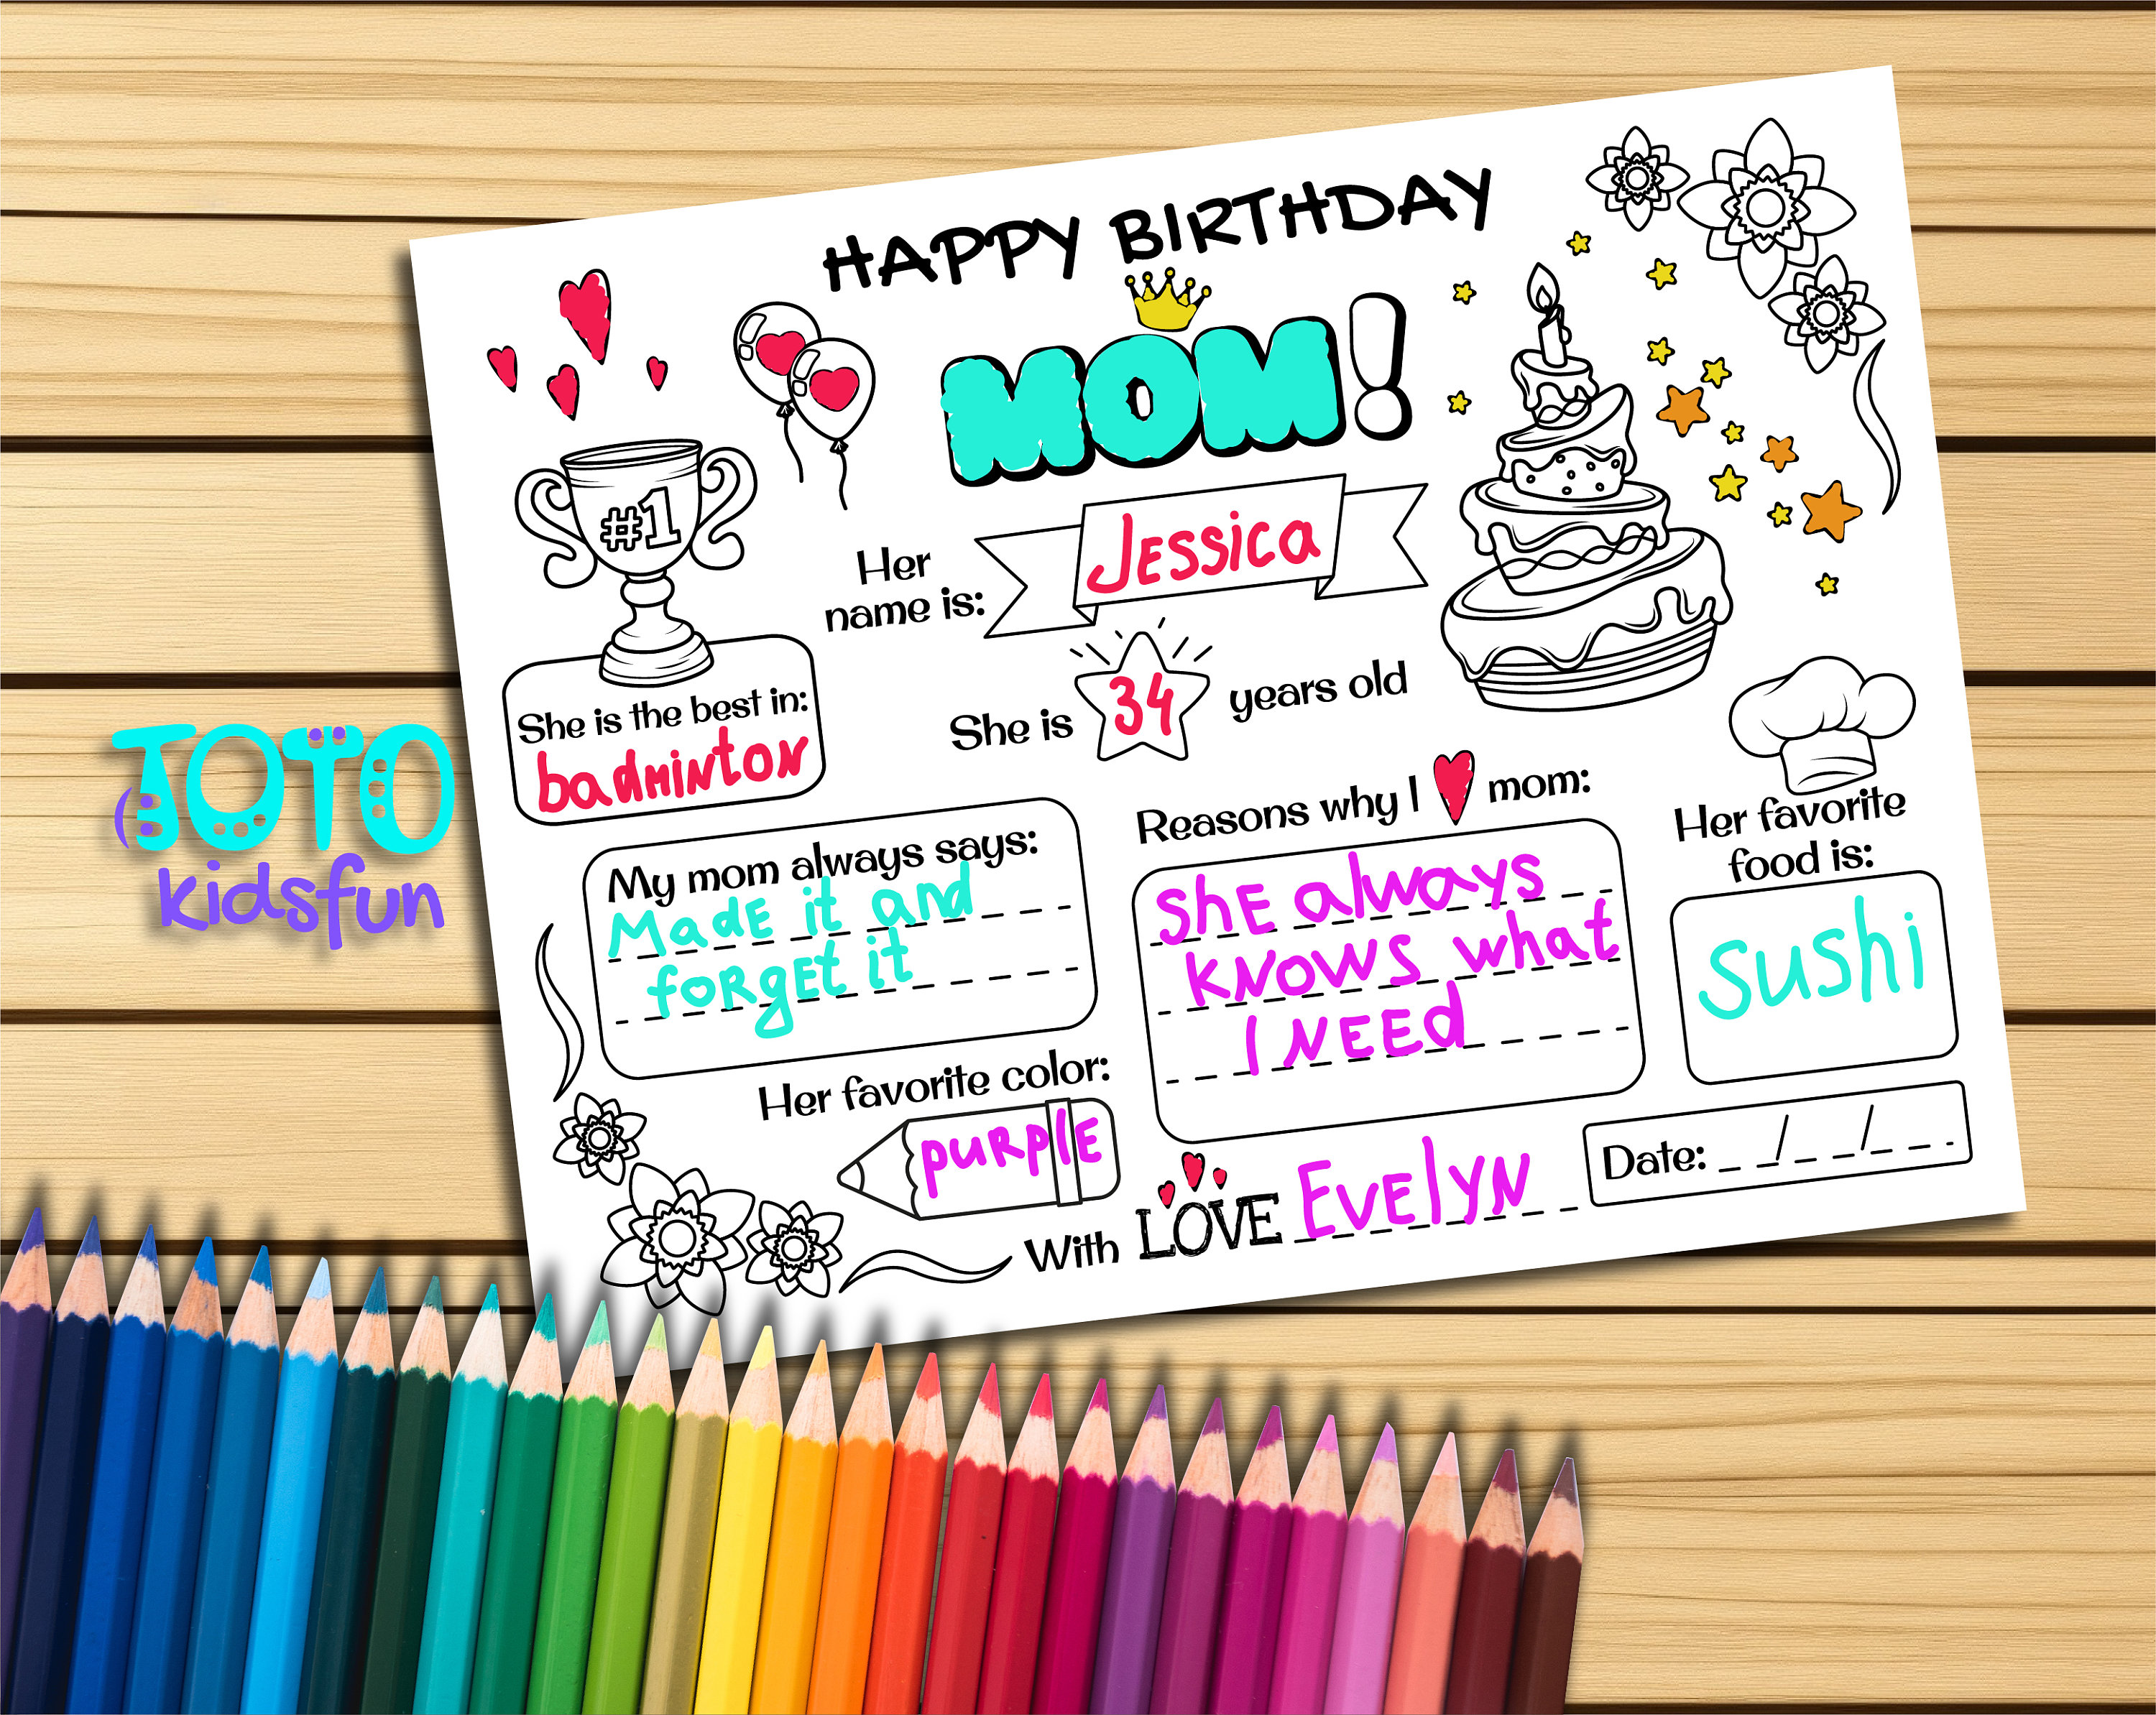 HAPPY BIRTHDAY
MOM!
#1
Her
name is:
Jessica
She is the best in:
badminton
She is 34 years old
My mom always says:
Made it and
forget it
Reasons why I mom:
She always
knows what
I need
Her favorite
food is:
sushi
Her favorite color:
purple
With LOVE Evelyn
Date: / /
TOTO
kidsfun